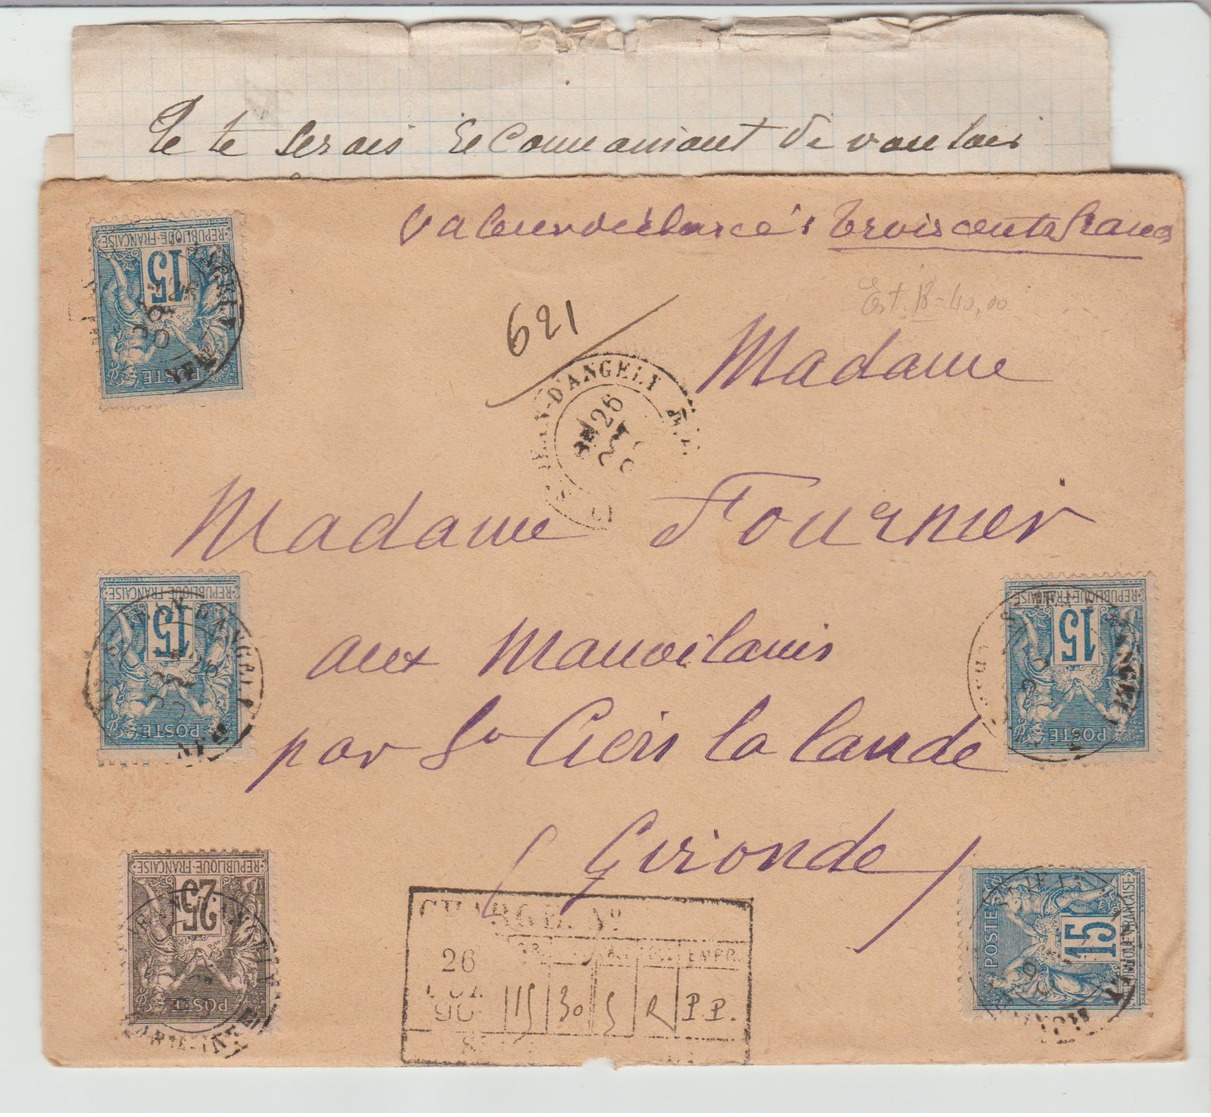 Je te serais reconnaissant de vouloir
Valeur déclarée: trois cents francs
Est. B = 40,00
621
Madame
JEAN-D'ANGELY
26
Madame Fournier
aux Mauvilains
par St Ciers la lande
(Gironde)
RÉPUBLIQUE-FRANÇAISE
15
POSTE
RÉPUBLIQUE FRANÇAISE
15
POSTE
RÉPUBLIQUE FRANÇAISE
15
POSTE
RÉPUBLIQUE-FRANÇAISE
25
POSTE
RÉPUBLIQUE FRANÇAISE
15
POSTE
CHARGÉ. No
26
90
115 30 5 R P.P.